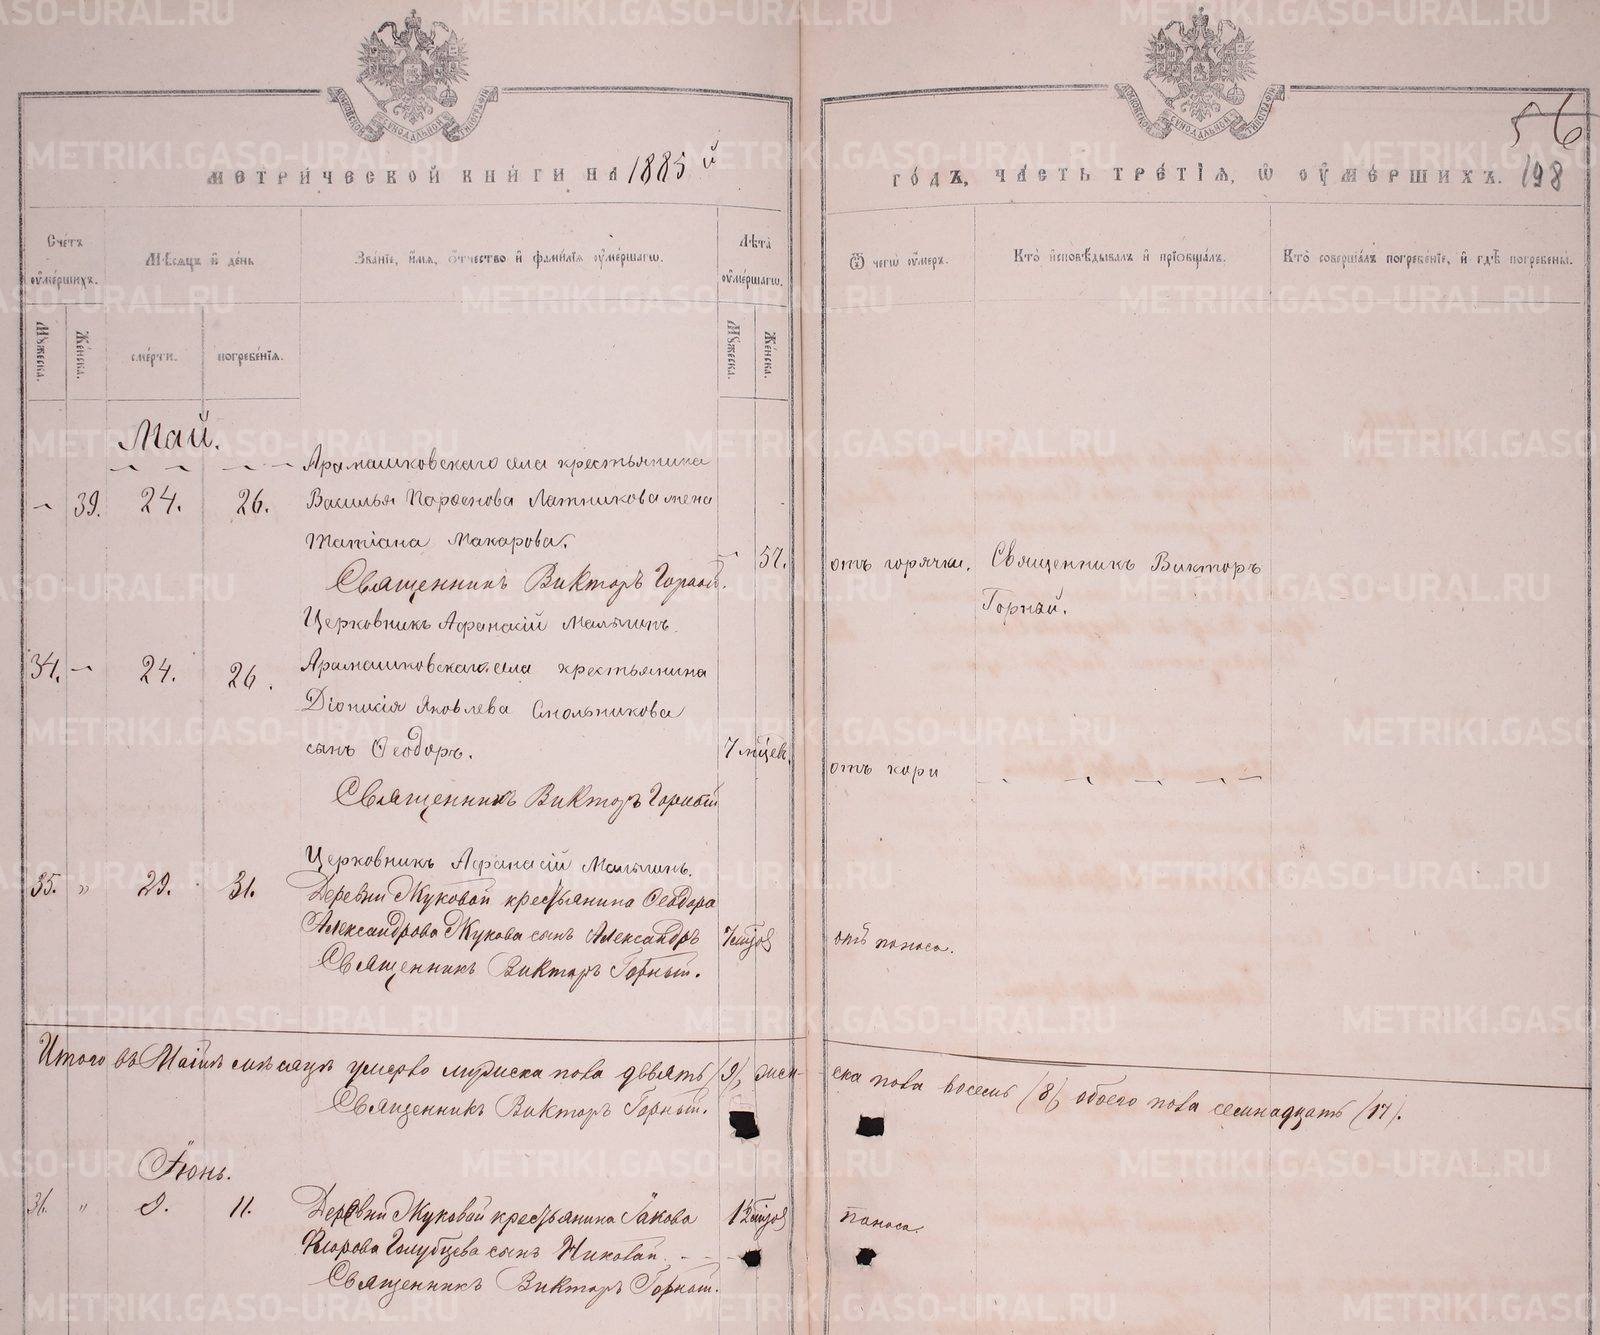 МЕТРИЧЕСКОЙ КНИГИ НА 1885 й
ГОДЪ, ЧАСТЬ ТРЕТІЯ, Ѡ ОУМЕРШИХЪ. 198
56
Счетъ оумершихъ.
Мѣсяцъ и день
Званіе, имя, отчество и фамилія оумершагѡ.
Лѣта оумершагѡ.
Ѿ чегѡ оумеръ.
Кто исповѣдывалъ и пріобщалъ.
Кто совершалъ погребеніе, и гдѣ погребены.
Мужеска.
Женска.
смерти.
погребенія.
Мужеска.
Женска.
Май.
Арамашковскаго села крестьянина
39. 24. 26. Василья Парѳенова Латникова жена
Татіана Макарова. 57. отъ горячки. Священникъ Викторъ
Священникъ Викторъ Горный. Горный.
Церковникъ Аѳанасій Малыгинъ.
34. 24. 26. Арамашковскаго села крестьянина
Діонисія Яковлева Смольникова
сынъ Ѳеодоръ. 7 мцевъ. отъ кори
Священникъ Викторъ Горный
Церковникъ Аѳанасій Малыгинъ.
35. " 29. 31. Деревни Жуковой крестьянина Ѳеодора
Александрова Жукова сынъ Александръ отъ поноса.
Священникъ Викторъ Горный.
Итого въ Маіи мѣсяцѣ умерло мужеска пола девять (9), женска пола восемь (8), обоего пола семнадцать (17).
Священникъ Викторъ Горный.
Іюнь.
" 9. 11. Деревни Жуковой крестьянина Іакова поноса.
Голубцева сынъ Николай.
Священникъ Викторъ Горный.
METRIKI.GASO-URAL.RU